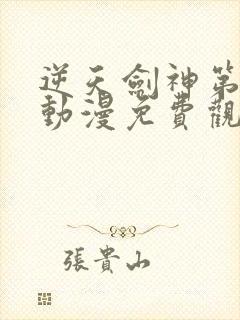 逆天劍神第
動漫免費觀
張貴山